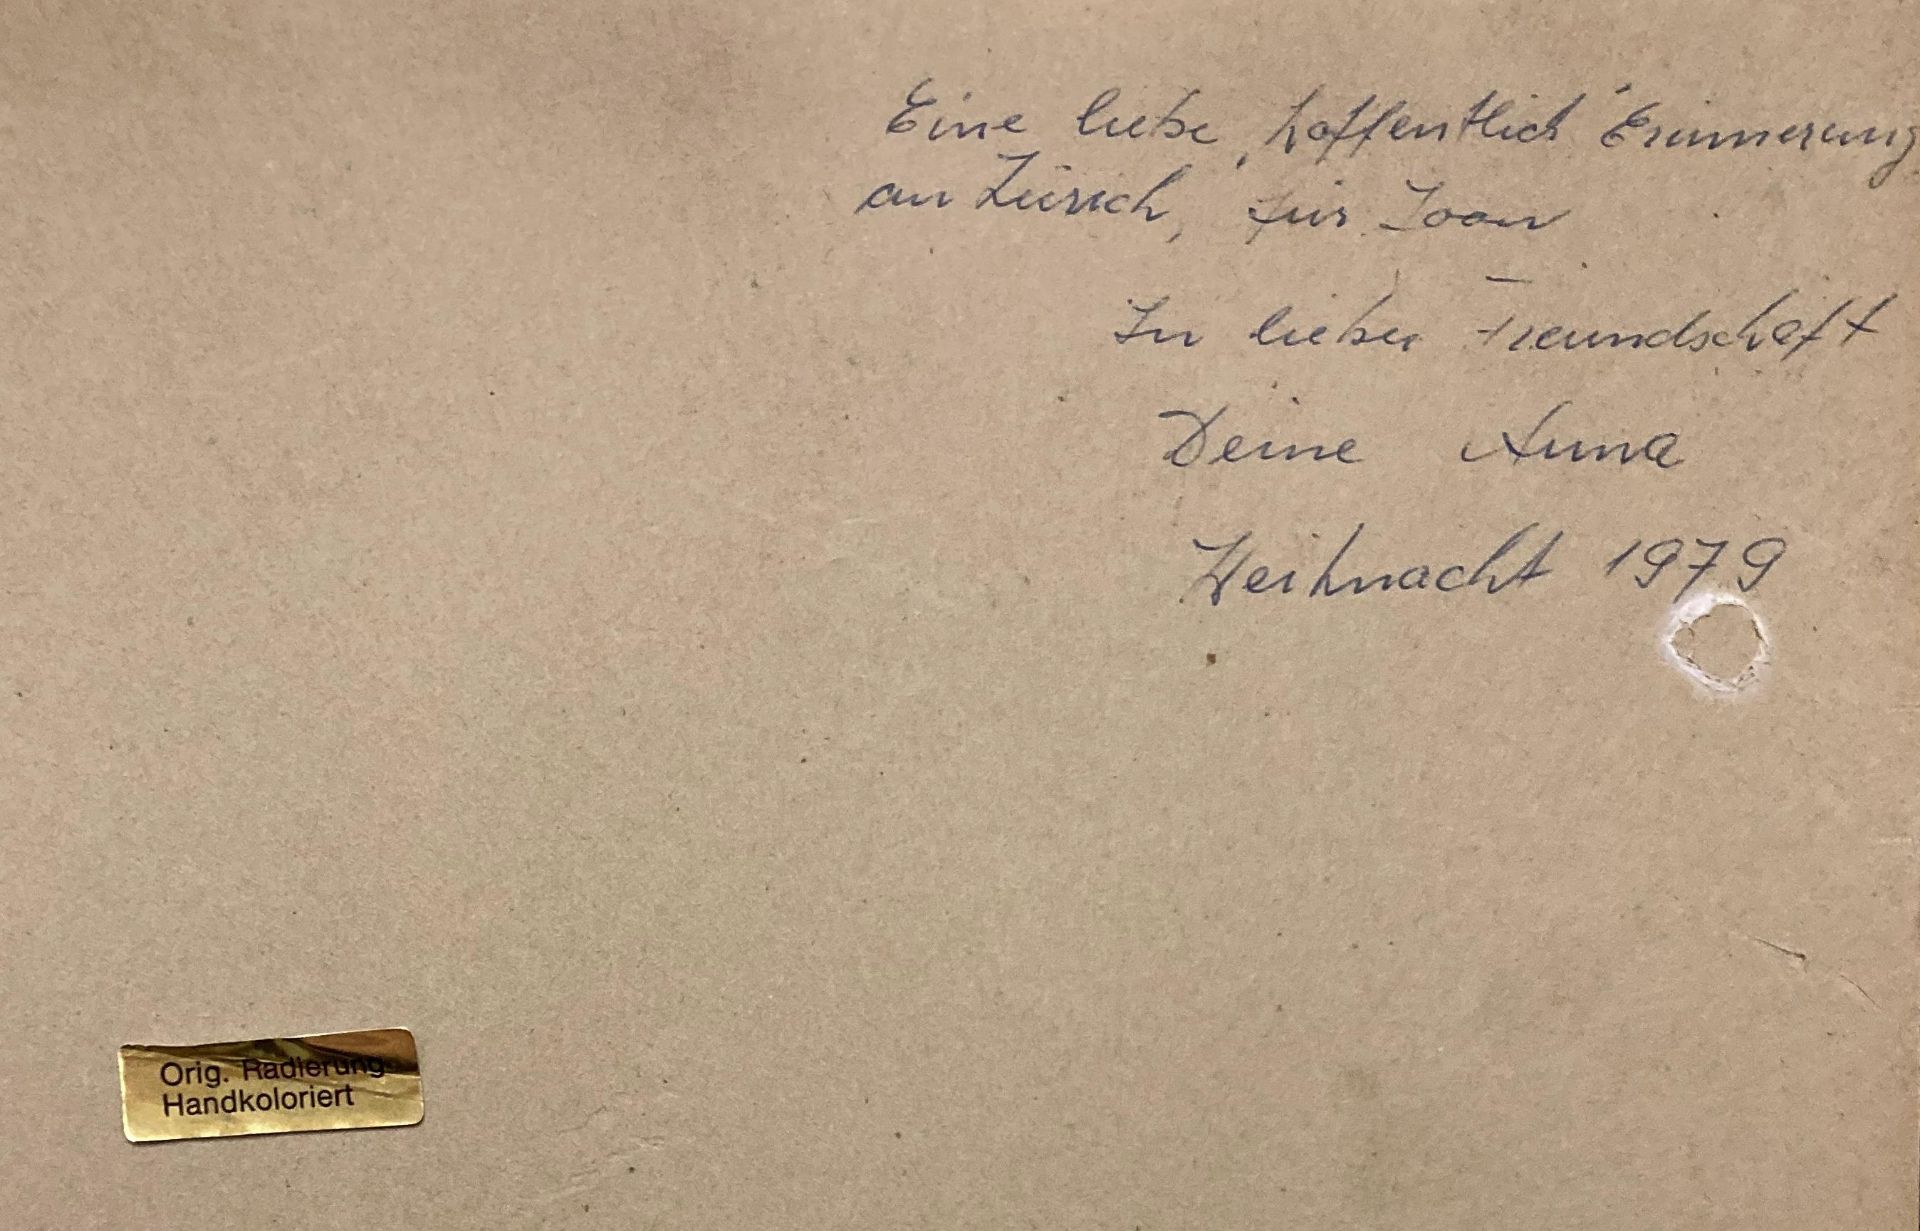 Eine liebe „hoffentlich" Erinnerung
an Zürich, für Joan
In lieber Freundschaft
Deine Anna
Weihnacht 1979
Orig. Radierung
Handkoloriert